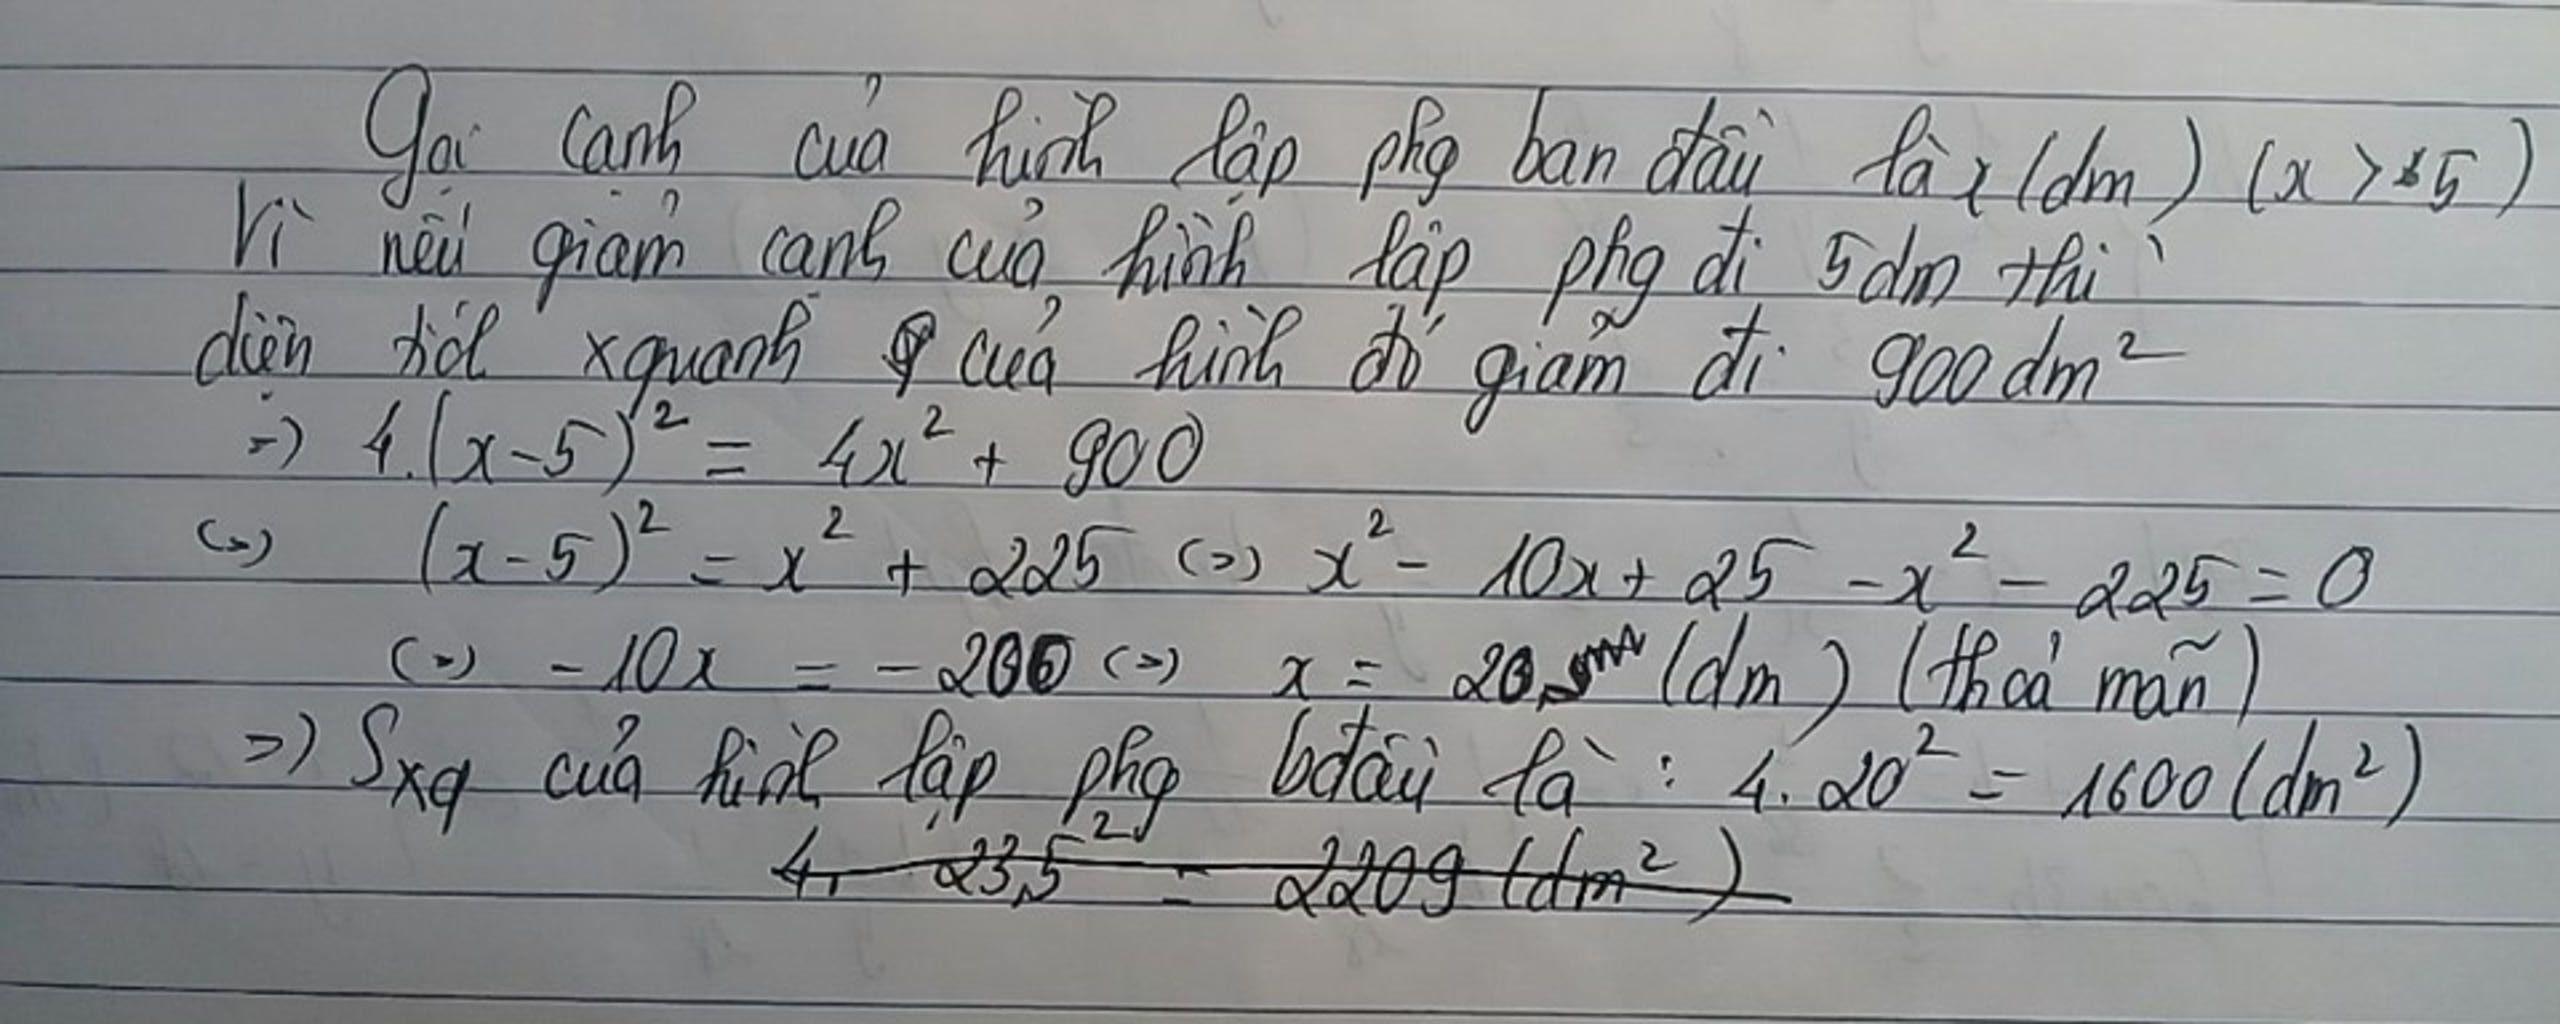 Gọi cạnh của hình lập phg ban đầu là x (dm) (x > 5)
Vì nếu giảm cạnh của hình lập phg đi 5dm thì
diện tích xquanh của hình đó giảm đi 900 dm²
=> 4.(x-5)² = 4x² + 900
<=> (x-5)² = x² + 225 <=> x² - 10x + 25 - x² - 225 = 0
<=> -10x = -200 <=> x = 20 (dm) (thoả mãn)
=> Sxq của hình lập phg bđầu là : 4. 20² = 1600 (dm²)
4. 23,5² = 2209 (dm²)